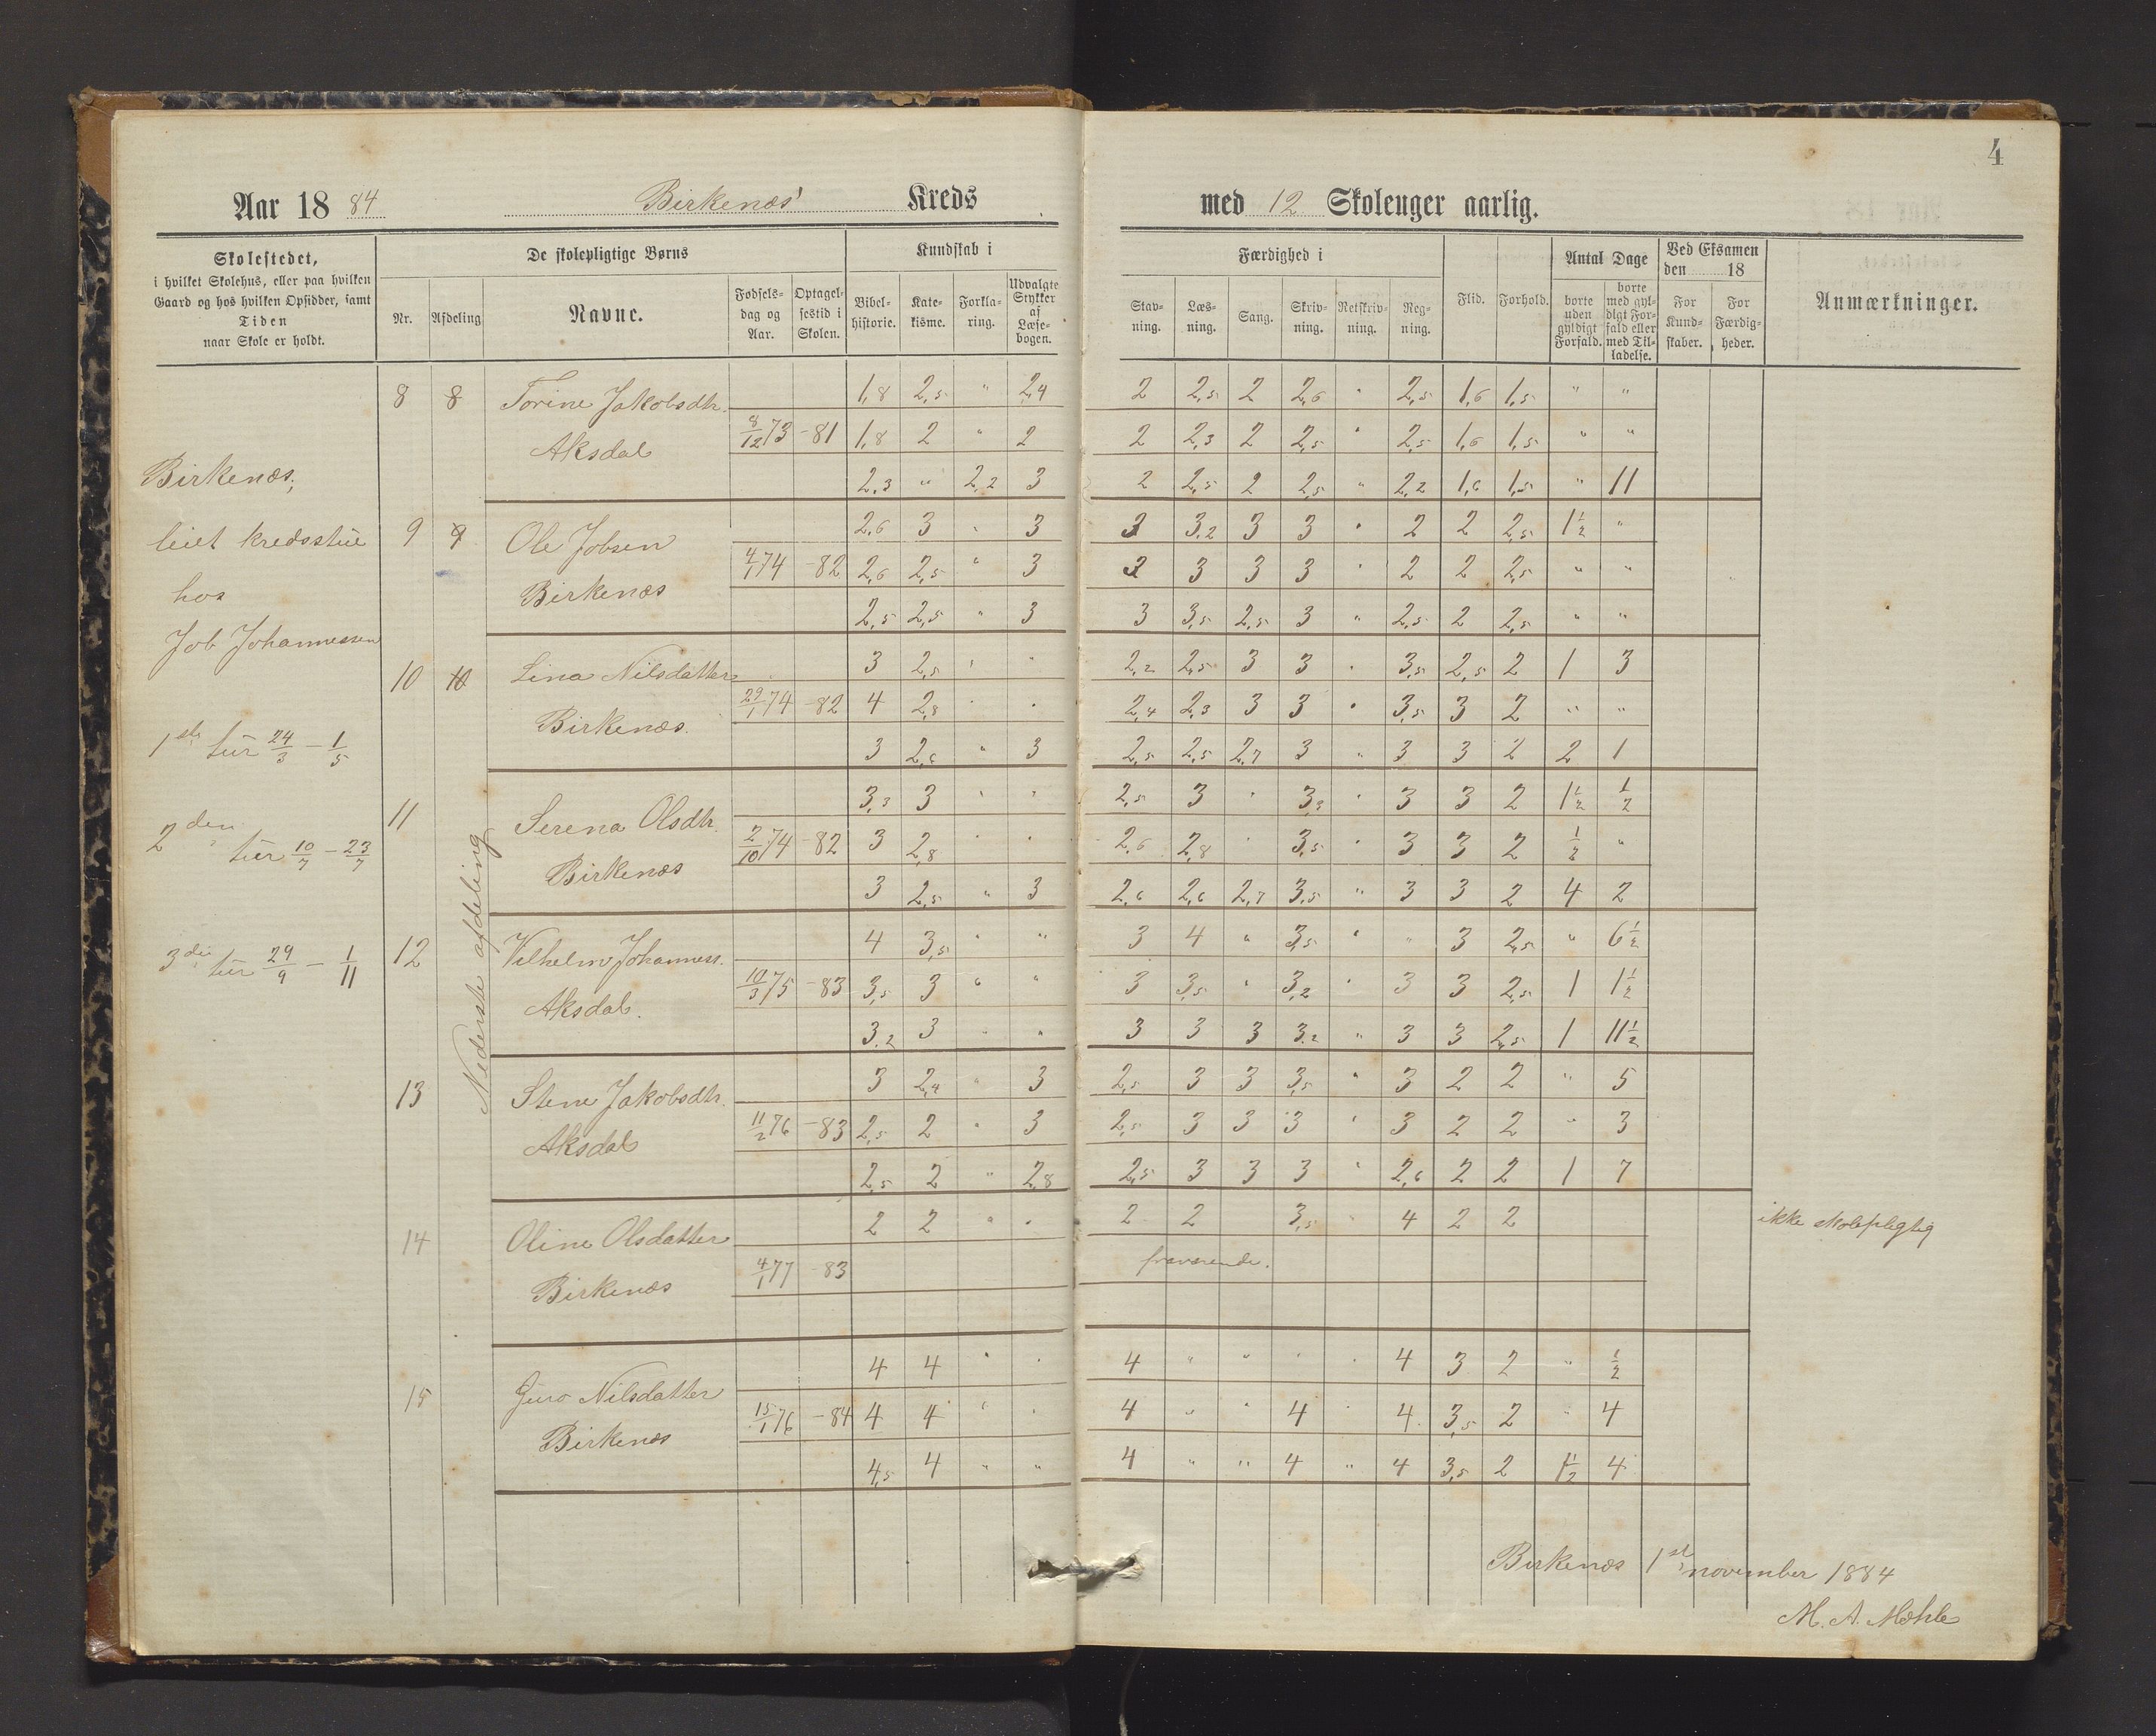 4
Aar 18 84 Birkenæs' Kreds med 12 Skoleuger aarlig.
Skolestedet,
i hvilket Skolehus, eller paa hvilken
Gaard og hos hvilken Opsidder, samt
Tiden
naar Skole er holdt.
De skolepligtige Børns
Nr.
Afdeling
Navne.
Fødsels-
dag og
Aar.
Optagel-
sestid i
Skolen.
Kundskab i
Bibel-
historie.
Kate-
kisme.
Forkla-
ring.
Udvalgte
Stykker
af
Læse-
bogen.
Færdighed i
Stav-
ning.
Læs-
ning.
Sang.
Skriv-
ning.
Retskriv-
ning.
Reg-
ning.
Flid.
Forhold.
Antal Dage
borte
uden
gyldigt
Forfald.
borte
med gyl-
digt For-
fald eller
med Til-
ladelse.
Ved Eksamen
den 18
For
Kund-
skaber.
For
Færdig-
heder.
Anmærkninger.
Birkenæs,
leiet kredsstue
hos
Job Johannessen
1ste tur 24/3 – 1/5
2den tur 10/7 – 23/7
3die tur 29/9 – 1/11
Nederste afdeling
8 8 Torine Jakobsdtr. 1,8 2,5 " 2,4 2 2,5 2 2,6 " 2,5 1,6 1,5 " "
Aksdal 8/12 73 -81 1,8 2 " 2 2 2,3 2 2,5 " 2,5 1,6 1,5 " "
2,3 " 2,2 3 2 2,5 2 2,5 " 2,2 1,6 1,5 " 11
9 9 Ole Jobsen 2,6 3 " 3 3 3,2 3 3 " 2 2 2,5 1½ "
Birkenæs 4/1 74 -82 2,6 2,5 " 3 3 3 3 3 " 2 2 2,5 " "
2,5 2,5 " 3 3 3,5 2,5 3 " 2,5 2 2,5 " "
10 10 Lina Nilsdatter 3 2,5 " " 2,2 2,5 3 3 " 3,5 2,5 2 1 3
Birkenæs. 29/1 74 -82 4 2,8 " " 2,4 2,3 3 3 " 3,5 3 2 " "
3 2,6 " 3 2,5 2,5 2,7 3 " 3 3 2 2 1
11 Serena Olsdtr. 3,3 3 " " 2,5 3 " 3,3 " 3 3 2 1½ ½
Birkenæs 2/10 74 -82 3 2,8 " " 2,6 2,8 " 3,5 " 3 3 2 ½ "
3 2,5 " 3 2,6 2,6 2,7 3,5 " 3 3 2 4 2
12 Vilhelm Johanness. 4 3,5 " " 3 4 " 3,5 " " 3 2,5 " 6½
Aksdal. 10/3 75 -83 3,5 3 " " 3 3,5 " 3,2 " 3 3 2,5 1 1½
3,2 3 " " 3 3 3 3,2 " 3 3 2,5 1 11½
13 Stene Jakobsdtr. 3 2,4 " 3 2,5 3 3 3,5 " 3 2 2 " 5
Aksdal 11/2 76 -83 2,5 2 " 3 2,5 3 3 3 " 3 2 2 " 3
2,5 2 " 2,8 2,5 3 3 3 " 2,6 2 2 1 7
14 Oline Olsdatter 2 2 " " 2 2 3,5 " 4 2 2 ikke skolepligtig
Birkenæs 4/1 77 -83 fraværende.
15 Guro Nilsdatter 4 4 " " 4 " " " " 4 3 2 " ½
Birkenæs 15/1 76 -84 4 4 " " 4 " " 4 " 4 3,5 2 " 4
4,5 4 " " 4 " " 4 " 4 3,5 2 1½ 4
Birkenæs 1st november 1884
M. A. Mæhle